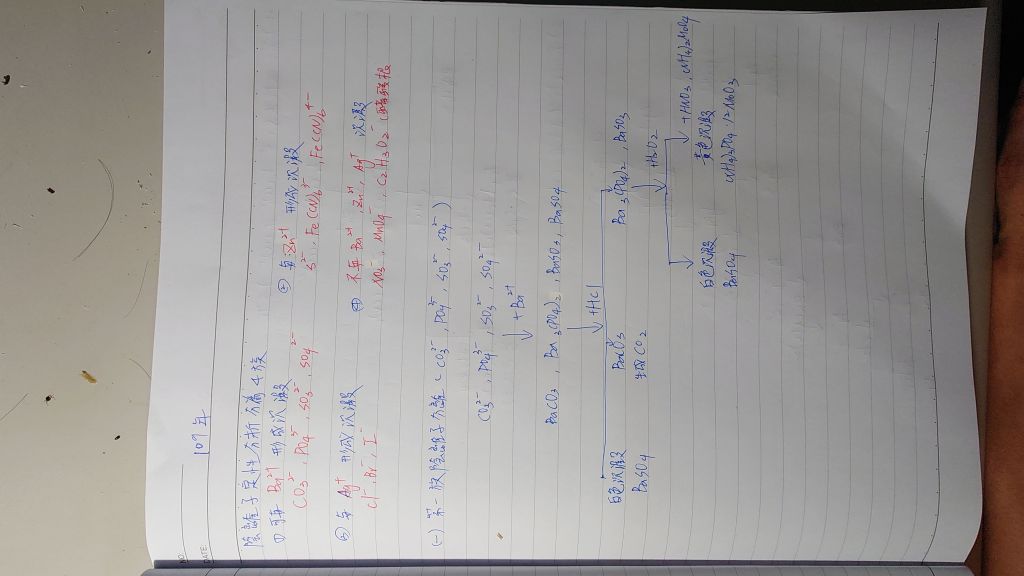 NO.
DATE
109年
陰離子定性分析分為4族
① 與 Ba²⁺ 形成沉澱
CO₃²⁻, PO₄³⁻, SO₃²⁻, SO₄²⁻
② 與 Zn²⁺ 形成沉澱
S²⁻, Fe(CN)₆³⁻, Fe(CN)₆⁴⁻
③ 與 Ag⁺ 形成沉澱
Cl⁻, Br⁻, I⁻
④ 不與 Ba²⁺, Zn²⁺, Ag⁺ 沉澱
NO₃⁻, MnO₄⁻, C₂H₃O₂⁻ (醋酸根
(一) 第一族陰離子分離 ( CO₃²⁻, PO₄³⁻, SO₃²⁻, SO₄²⁻ )
CO₃²⁻, PO₄³⁻, SO₃²⁻, SO₄²⁻
↓ + Ba²⁺
BaCO₃, Ba₃(PO₄)₂, BaSO₃, BaSO₄
↓ + HCl
白色沉澱
BaSO₄
BaCO₃
生成 CO₂
Ba₃(PO₄)₂, BaSO₃
↓ + H₂O₂
白色沉澱
BaSO₄
↓ + HNO₃, (NH₄)₂MoO₄
黃色沉澱
(NH₄)₃PO₄ · 12MoO₃